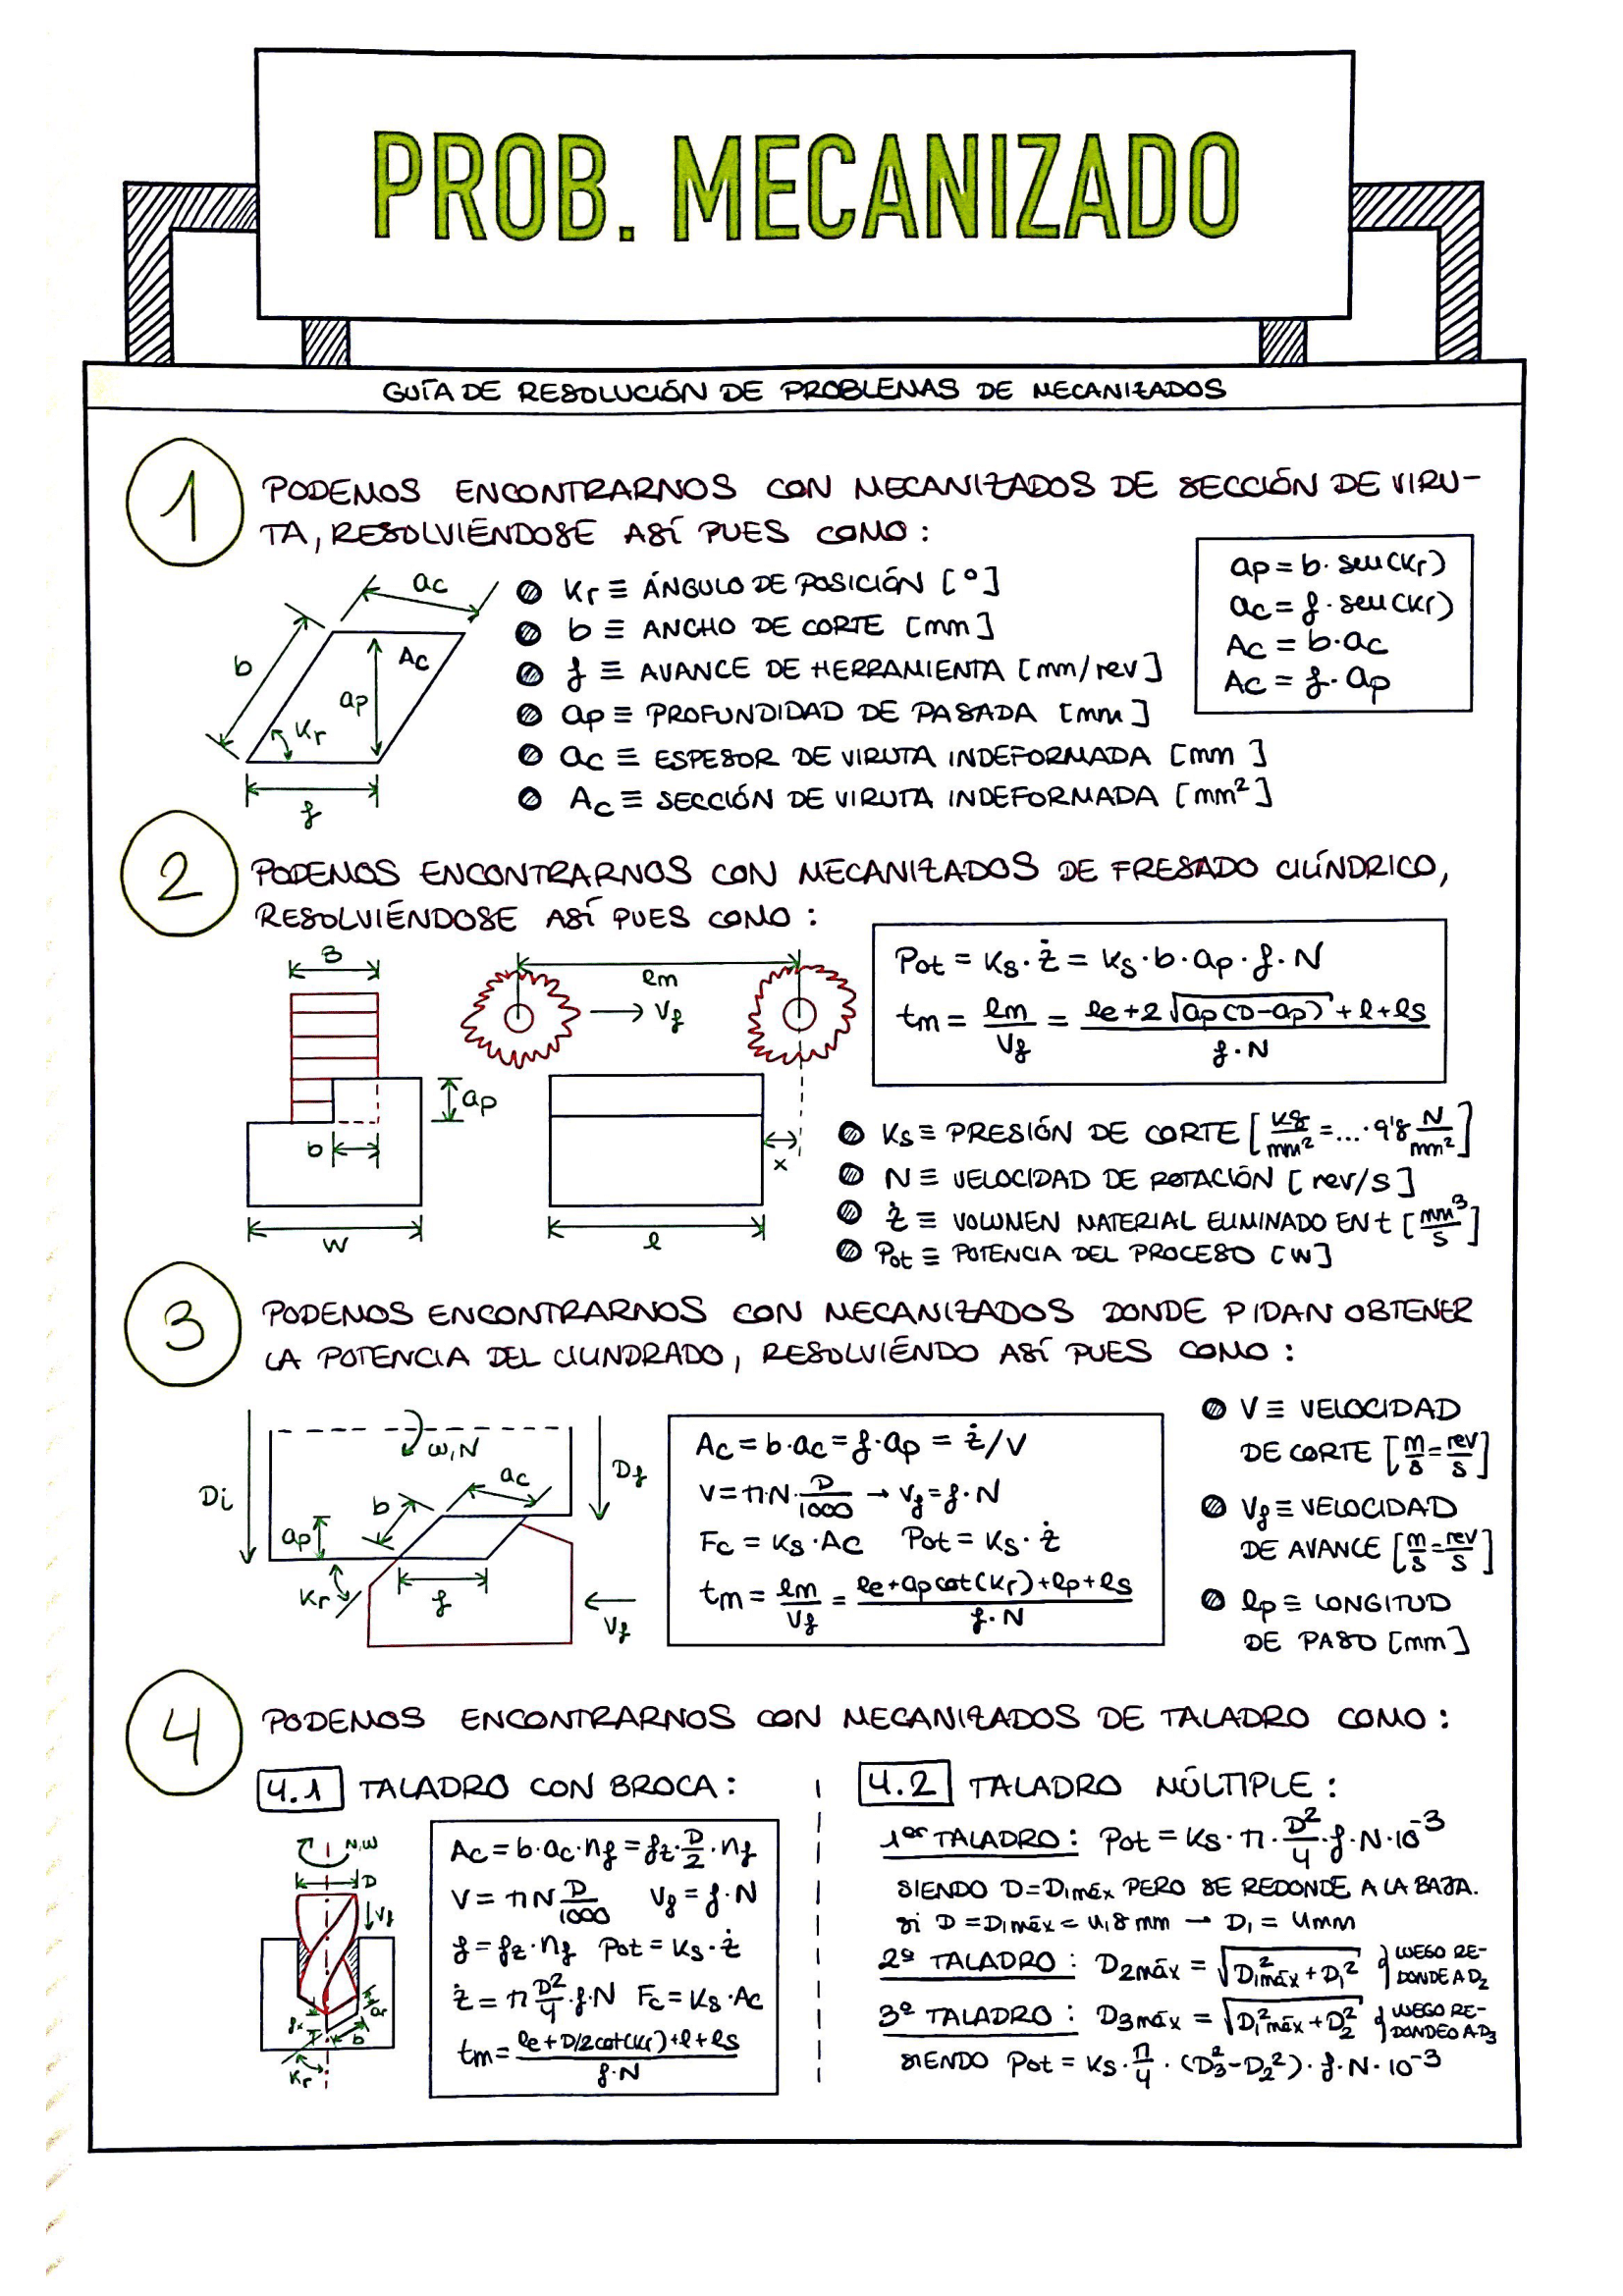 PROB. MECANIZADO
GUÍA DE RESOLUCIÓN DE PROBLEMAS DE MECANIZADOS
1 PODEMOS ENCONTRARNOS CON MECANIZADOS DE SECCIÓN DE VIRU-
TA, RESOLVIÉNDOSE ASÍ PUES COMO:
ac
b
Ac
ap
Kr
f
Kr ≡ ÁNGULO DE POSICIÓN [°]
b ≡ ANCHO DE CORTE [mm]
f ≡ AVANCE DE HERRAMIENTA [mm/rev]
ap ≡ PROFUNDIDAD DE PASADA [mm]
ac ≡ ESPESOR DE VIRUTA INDEFORMADA [mm]
Ac ≡ SECCIÓN DE VIRUTA INDEFORMADA [mm²]
ap = b · sen(Kr)
ac = f · sen(Kr)
Ac = b·ac
Ac = f·ap
2 PODEMOS ENCONTRARNOS CON MECANIZADOS DE FRESADO CILÍNDRICO,
RESOLVIÉNDOSE ASÍ PUES COMO:
B
ap
b
W
lm
Vf
x
l
Pot = Ks · ż = Ks · b · ap · f · N
tm = lm/Vf = (le + 2√(ap(D-ap)) + l + ls)/(f·N)
Ks ≡ PRESIÓN DE CORTE [kg/mm² = ... · 9'8 N/mm²]
N ≡ VELOCIDAD DE ROTACIÓN [rev/s]
ż ≡ VOLUMEN MATERIAL ELIMINADO EN t [mm³/s]
Pot ≡ POTENCIA DEL PROCESO [W]
3 PODEMOS ENCONTRARNOS CON MECANIZADOS DONDE PIDAN OBTENER
LA POTENCIA DEL CILINDRADO, RESOLVIENDO ASÍ PUES COMO:
ω,N
Di
Df
ac
b
ap
Kr
f
Vf
Ac = b·ac = f·ap = ż/V
V = π·N·D/1000 → Vf = f·N
Fc = Ks·Ac Pot = Ks·ż
tm = lm/Vf = (le + ap cot(Kr) + lp + ls)/(f·N)
V ≡ VELOCIDAD
DE CORTE [m/s = rev/s]
Vf ≡ VELOCIDAD
DE AVANCE [m/s = rev/s]
lp ≡ LONGITUD
DE PASO [mm]
4 PODEMOS ENCONTRARNOS CON MECANIZADOS DE TALADRO COMO:
4.1 TALADRO CON BROCA:
N,W
D
Vf
b
Kr
Ac = b·ac·nf = fz·D/2·nf
V = πN D/1000 Vf = f·N
f = fz·nf Pot = Ks·ż
ż = π D²/4·f·N Fc = Ks·Ac
tm = (le + D/2 cot(Kr) + l + ls)/(f·N)
4.2 TALADRO MÚLTIPLE:
1er TALADRO: Pot = Ks·π·D²/4·f·N·10⁻³
SIENDO D = D1máx PERO SE REDONDE A LA BAJA.
Si D = D1máx = 4,8 mm → D1 = 4mm
2º TALADRO: D2máx = √(D1máx² + D1²) } LUEGO RE-
DONDE A D2
3º TALADRO: D3máx = √(D1²máx + D2²) } LUEGO RE-
DONDEO A D3
SIENDO Pot = Ks·π/4·(D3² - D2²)·f·N·10⁻³